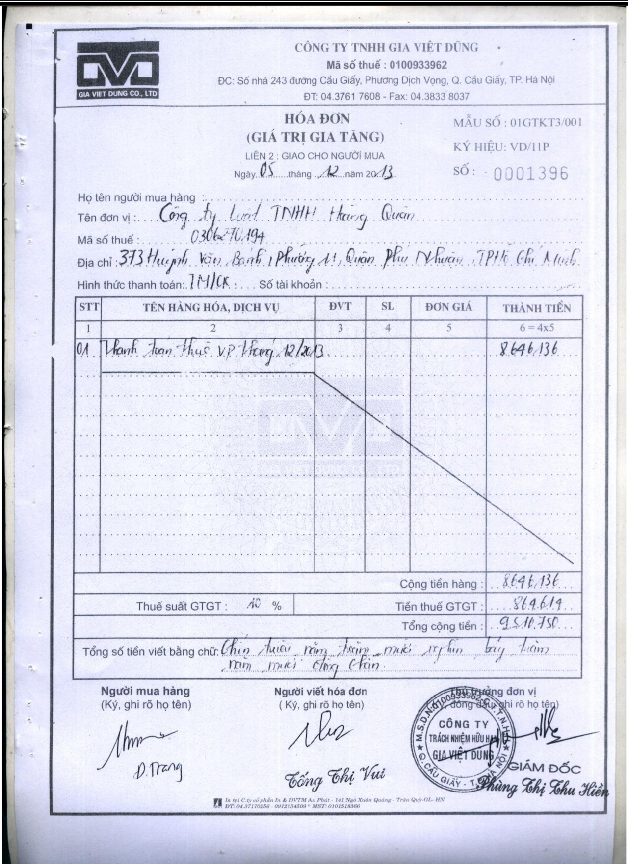 DVD
GIA VIET DUNG CO., LTD
CÔNG TY TNHH GIA VIỆT DŨNG
Mã số thuế : 0100933962
ĐC: Số nhà 243 đường Cầu Giấy, Phường Dịch Vọng, Q. Cầu Giấy, TP. Hà Nội
ĐT: 04.3761 7608 - Fax: 04.3833 8037
HÓA ĐƠN
(GIÁ TRỊ GIA TĂNG)
LIÊN 2 : GIAO CHO NGƯỜI MUA
Ngày 05 tháng 12 năm 2013
MẪU SỐ : 01GTKT3/001
KÝ HIỆU: VD/11P
SỐ : 0001396
Họ tên người mua hàng :
Tên đơn vị : Công ty Luật TNHH Hoàng Quân
Mã số thuế :
Địa chỉ : 373 Huỳnh Văn Bánh, Phường 11, Quận Phú Nhuận, TP Hồ Chí Minh
Hình thức thanh toán: TM/CK Số tài khoản :
STT TÊN HÀNG HÓA, DỊCH VỤ ĐVT SL ĐƠN GIÁ THÀNH TIỀN
1 2 3 4 5 6 = 4x5
01 Thanh toán thuê VP tháng 12/2013 8.646.136
Cộng tiền hàng : 8.646.136
Thuế suất GTGT : 10 % Tiền thuế GTGT : 864.614
Tổng cộng tiền : 9.510.750
Tổng số tiền viết bằng chữ: Chín triệu năm trăm mười nghìn bảy trăm
năm mươi đồng chẵn.
Người mua hàng
(Ký, ghi rõ họ tên)
Đ.Trang
Người viết hóa đơn
( Ký, ghi rõ họ tên)
Tống Thị Vui
Thủ trưởng đơn vị
đóng dấu, ghi rõ họ tên)
M.S.D.N:0100933962-C.T.T.N.H.H
CÔNG TY
TRÁCH NHIỆM HỮU HẠN
GIA VIỆT DŨNG
Q. CẦU GIẤY - T.P HÀ NỘI
GIÁM ĐỐC
Phùng Thị Thu Hiền
In tại C.ty cổ phần In & DVTM An Phát - 141 Ngô Xuân Quảng - Trâu Quỳ-GL- HN
ĐT: 04.37170256 - 0912154509 * MST: 0101518366